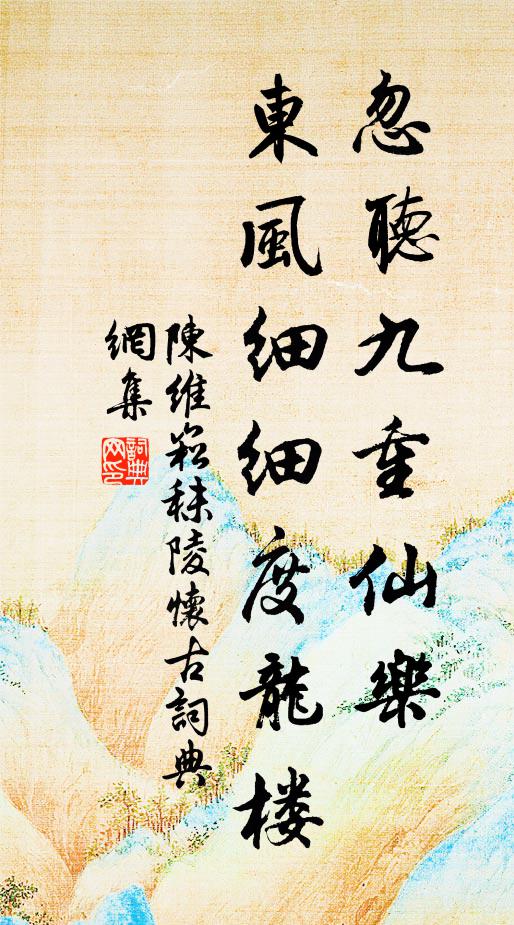 忽聽九重仙樂
東風細細度龍楼
陳維崧秣陵懷古詞典
網集
詞典
网印